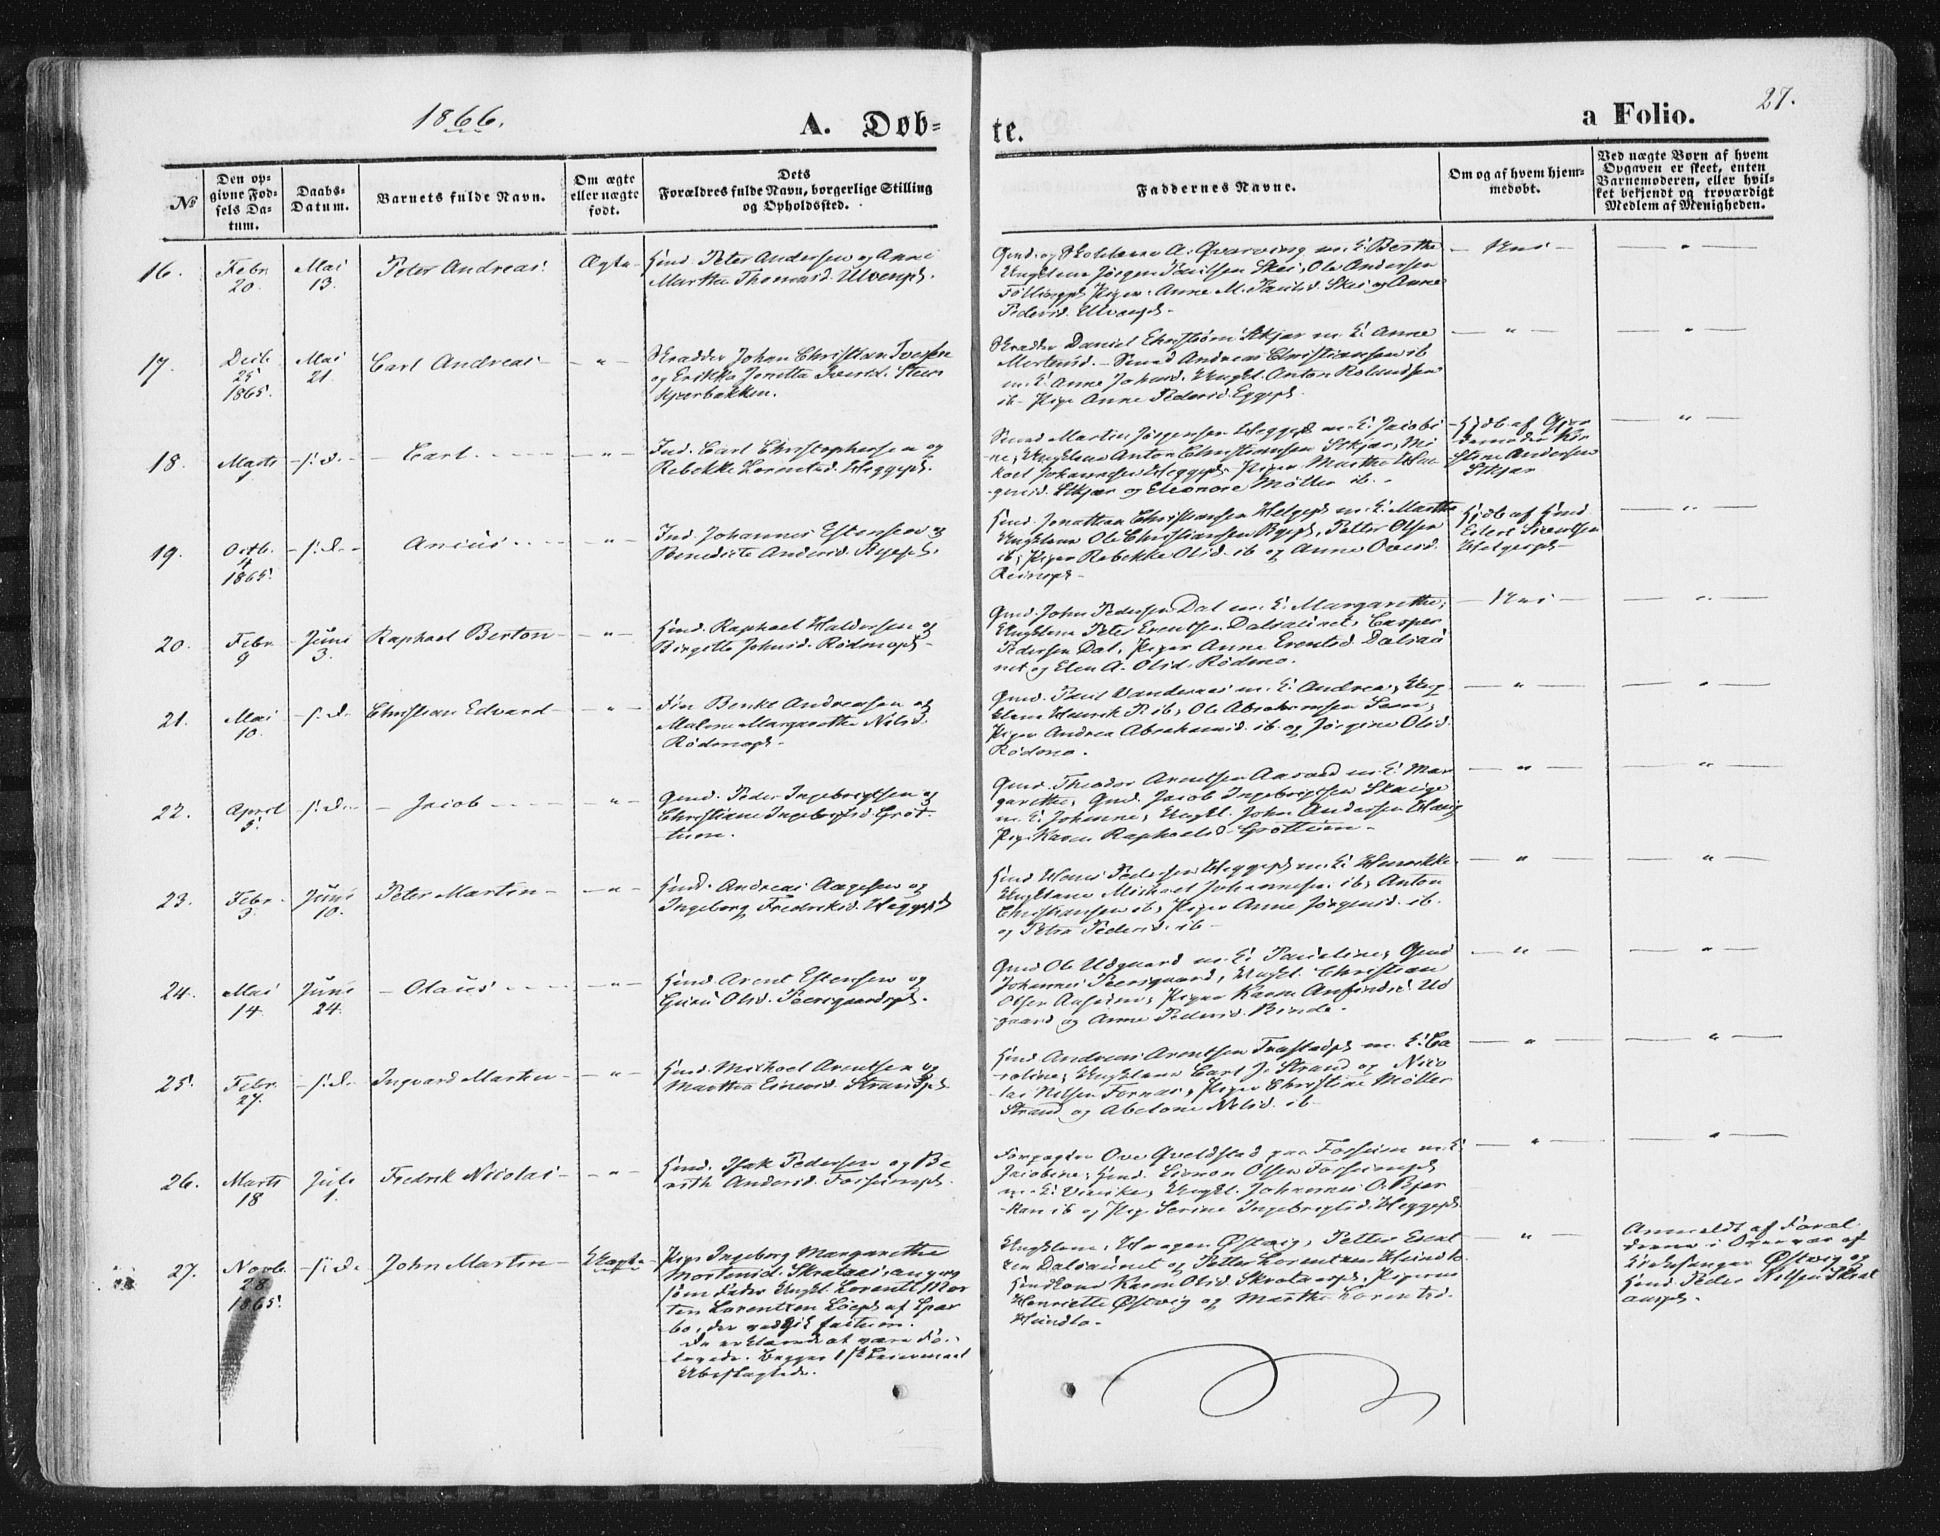 1866.
A. Døb=
te.
a Folio.
27.
No
Den op=
givne Fød=
sels Da=
tum.
Daabs=
Datum.
Barnets fulde Navn.
Om ægte
eller uægte
født.
Dets
Forældres fulde Navn, borgerlige Stilling
og Opholdssted.
Faddernes Navne.
Om og af hvem hjem=
medøbt.
Ved uægte Børn af hvem
Opgaven er skeet, enten
Barnemoderen, eller hvil=
ket bekjendt og troværdigt
Medlem af Menigheden.
16.
Febr.
20.
Mai
13.
Peter Andreas.
Ægte
Hmd. Peter Andersen og Anne
Martha Thomasd. Ulvenpl.
Anne M. Paulsd. Skei og Anne
Pedersd. Ulvenpl.
— Nei —
— " —
17.
Decb.
25
1865.
Mai
21.
Carl Andreas
— " —
Skrædder Johan Christian Iversen
og Erikka Jonetta Iversd. Steen
kjærbakken.
Skrædder Daniel Christiern Stkjær m. E. Anne
Mortensd. — Smed Andreas Christiansen ib
m. E. Anne Johnsd. Ungkl. Anton Rolandsen
ib — Pige Anne Pedersd. Eggepl.
— " —
— " —
18.
Marts
1
— s. d. —
— Carl
— " —
Ind. Carl Christophersen og
Rebekke Lorentsd. Heggepl.
Smed Martin Jørgensen Heggepl m. E. Jacobi
ne, Ungklene Anton Christiansen Stkjær, Mi
kael Johannesen Heggepl. Piger Martha Hau
gensd. Stkjær og Eleonore Møller ib. —
Hjdb af Gjor
demoder Kir
stine Andersen
Stkjær
— " —
19.
Octb.
4
1865.
— s. d. —
AnEUS
— " —
Ind. Johannes Estensen og
Benedicte Andersd. Byepl.
Hmd. Jonathan Christiansen Helgepl m. E. Martha
Ungklene Ole Christiansen Byepl, Petter Olsen
ib, Piger Rebekke Olsd. ib og Anne Ovesd.
Hjdb af Hmd
Edert Sivertsen
Helgepl —
— " —
20.
Febr.
9
Juni
3.
Raphael Berton
— " —
Hmd. Raphael Haldorsen og
Birgitte Johnsd. Rødmopl —
Gmd. John Pedersen Dal m. E. Margarethe,
Ungklene Peter Erentsen Dalsaunet, Casper
Pedersen Dal, Piger Anne Erentsd Dalsau
net og Elen A. Olsd. Rødmo.
— Nei —
— " —
21.
Mai
10.
— s. d.
Christian Edvard
— " —
Fin Benke Andreasen og
Malene Margarethe Nilsd.
Rødmopl —
Gmd. Paul Vandernes m. E. Andrea, Ung
klene Henrik P. ib, Ole Abrahamsen Sem,
Piger Andrea Abrahamsd. ib. og Jørgine Olsd.
Rødmo.
— " —
— " —
22.
April
5.
— s. d. —
— Jacob
— " —
Gmd. Peder Ingebrigtsen og
Christiane Ingebrigtsd. Grøt-
tum.
Gmd. Theodor Arentsen Aasand m. E. Mar
garethe, Gmd. Jacob Ingebrigtsen Skavige
m. E. Johanne, Ungkl. John Andersen Havig
Pige Karen Raphaelsd. Grøttum —
— " —
— " —
23.
Febr.
3.
Juni
10.
Peter Martin
— " —
Hmd. Andreas Aagesen og
Ingeborg Fredriksd. Heggepl
Hmd Hans Pedersen Heggepl m. E. Henrikke
Ungklene Michael Johannesen ib, Anton
Christiansen ib, Piger Anne Jørgensd. ib.
og Petra Pedersd. ib —
— " —
— " —
24.
Mai
14.
Juni
24.
— Olaus
— " —
Hmd Arent Estensen og
Guru Olsd. Peersgaardspl.
Gmd Ole Udgaard m. E. Pauline, Gmd
Johannes Peersgaard, Ungkl. Christian
Olsen Aasum, Piger Karen Anfindsd. Ud
gaard og Anne Pedersd. Binde.
— " —
— " —
25.
Febr.
27.
— s. d. —
Ingvard Martin
— " —
Hmd. Michael Arentsen og
Martha Einersd. Strandpl
Hmd Andreas Arentsen Fræstadpl m. E. Ca
roline, Ungklene Carl J. Strand og Nico
lai Nilsen Fornes, Piger Christine Møller
Strand og Abelone Nilsd. ib —
— " —
— " —
26.
Marts
18
Juli
1.
Fredrik Nicolai
— " —
Hmd. Isak Pedersen og Be
rith Andersd. Forsumpl.
Forpagter Ove Qveldstad paa Forsum m. E.
Jacobine, Hmd. Simon Olsen Forsumpl
m. E. Ulrike, Ungkl. Johannes O. Bjer
kan ib og Pige Serine Ingebrigtsd. Heggepl
— " —
— " —
27.
Novb.
28
1865.
— s. d.
John Martin
Uægte
Pige Ingeborg Margarethe
Mortensd. Skralaas, angav
som Fader Ungkl. Lorents Mor
ten Lorentzen Løepl af Spar
bo, der vedgik factum.
De erklærede at være Fo-
lovede. Begges 1ste Leiermaal
Ubeslægtede.
Ungklene, Haagen Østvig, Petter Erent
sen Dalsaunet og Petter Lorentzen Hundlo
Hmdkone Karen Olsd. Skralaaspl, Pigerne
Henriette Østvig og Martha Lorentsd.
Hundlo.
— " —
Anmeldt af Foræl
drene i Overvær af
Kirkesanger Østvig og
Hmd. Peder Nilsen Skral
aaspl.